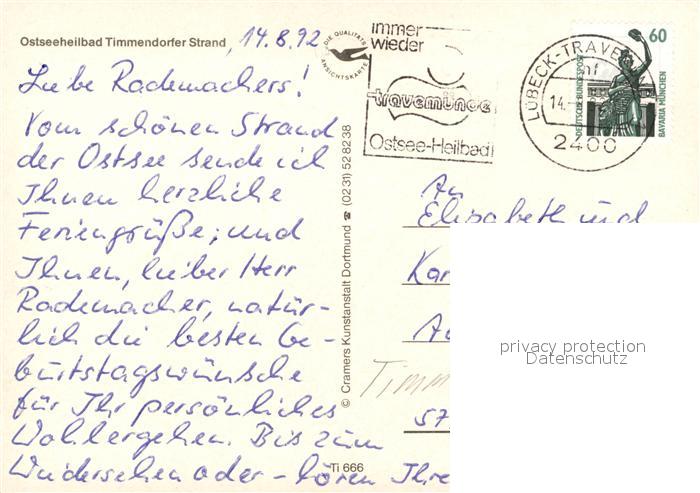 Ostseeheilbad Timmendorfer Strand, 14.8.92
Liebe Rademachers!
Vom schönen Strand
der Ostsee sende ich
Ihnen herzliche
Feriengrüße; und
Ihnen, lieber Herr
Rademacher, natür-
lich die besten Ge-
burtstagswünsche
für Ihr persönliches
Wohlergehen. Bis zum
Wiedersehen oder -hören Ihre
Ti 666
© Cramers Kunstanstalt Dortmund ☎ (0231) 52 8238
DIE QUALITÄTS
ANSICHTSKARTE
immer
wieder
travemünde
Ostsee-Heilbad
LÜBECK-TRAVEM
mf
14.
2400
60
DEUTSCHE BUNDESPOST
BAVARIA MÜNCHEN
An
Elisabeth und
Kar
Au
Timm
57
privacy protection
Datenschutz